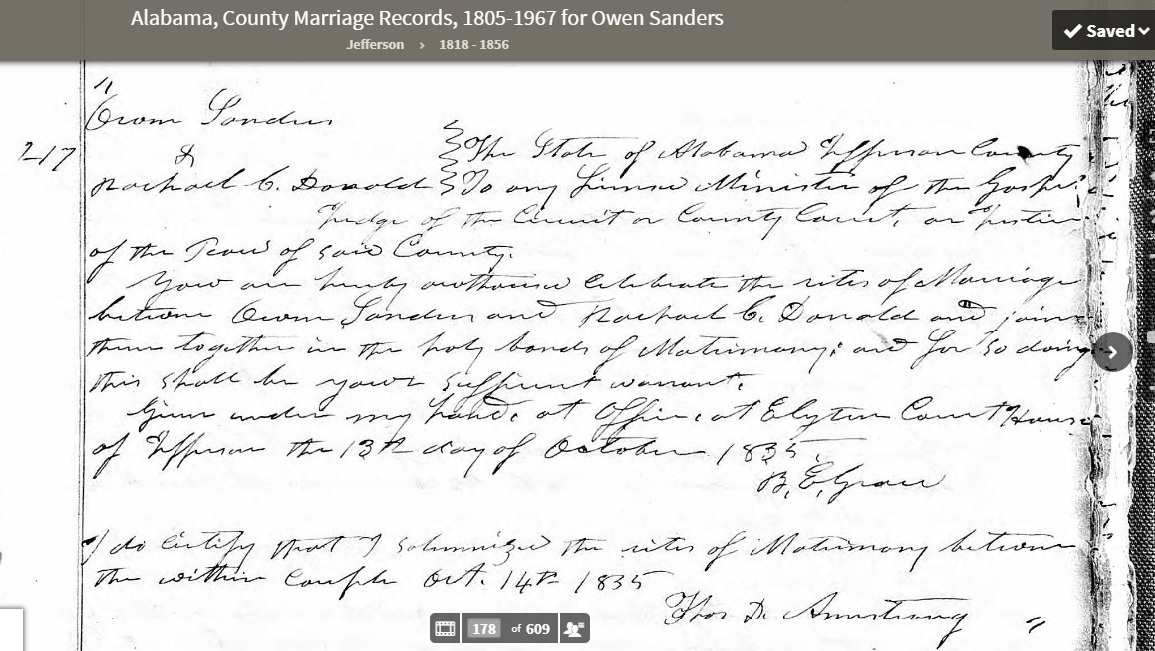 Alabama, County Marriage Records, 1805-1967 for Owen Sanders
Jefferson › 1818 - 1856
✓ Saved
"
Owen Sanders
217 &
The State of Alabama Jefferson County
Rachael C. Donald To any Licensed Minister of the Gospel
Judge of the Circuit or County Court, or Justice
of the Peace of said County.
You are hereby authorised Celebrate the rites of Marriage
between Owen Sanders and Rachael C. Donald and join
them together in the holy bonds of Matrimony; and for so doing
this shall be your sufficient warrant.
Given under my hand, at Office, at Elyton Court House
of Jefferson the 13th day of October 1835.
B. E. Grace
I do Certify that I solemnized the rites of Matrimony between
the within Couple Oct. 14th 1835
Thos D. Armstrong "
178 of 609